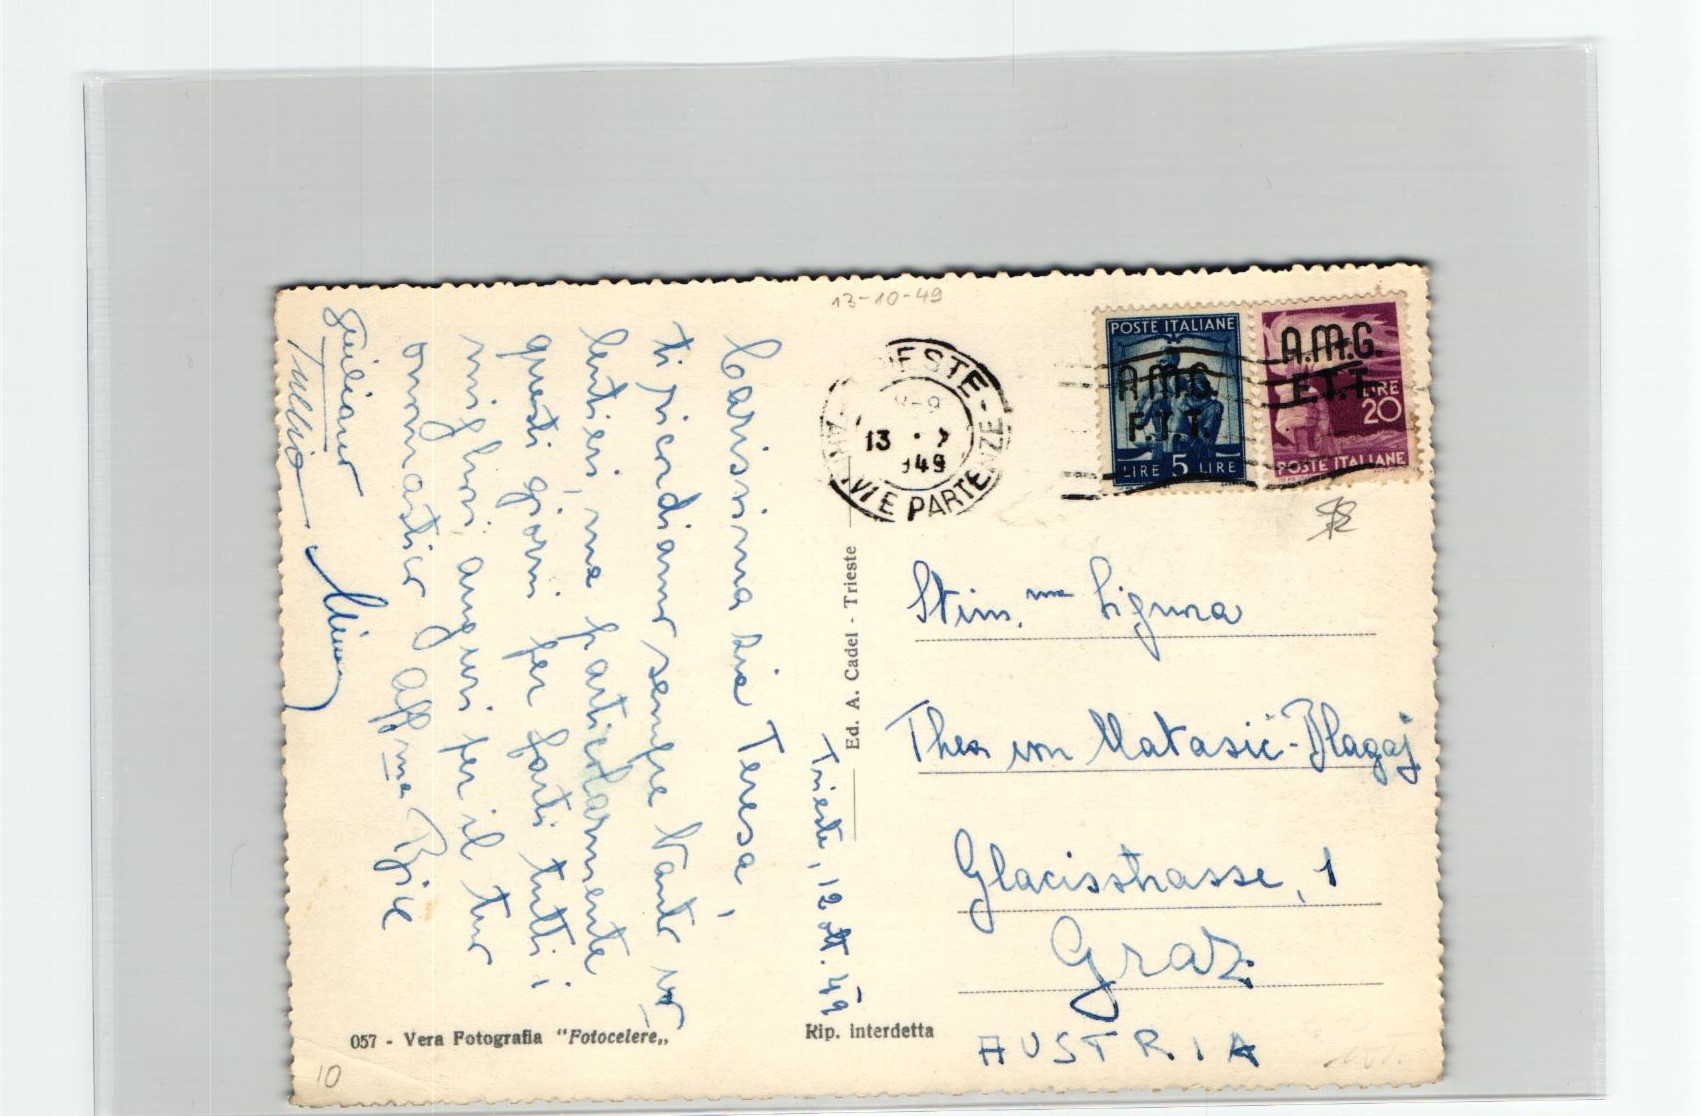 13-10-49
POSTE ITALIANE
A.M.G.
F.T.T.
LIRE 5 LIRE
A.M.G.
F.T.T.
LIRE
20
POSTE ITALIANE
8-9
13
949
E PARTENZE
Trieste, 12 ott. 49
Carissima zia Teresa,
ti ricordiamo sempre tanto vo-
lentieri, ma particolarmente
questi giorni per farti tutti i
migliori auguri per il tuo
onomastico aff.ma Bice
Giuliano
Tullio
Stim.ma Signora
Thea von Matasić-Blagaj
Glacisstrasse, 1
Graz
AUSTRIA
Ed. A. Cadel - Trieste
057 - Vera Fotografia "Fotocelere„
Rip. interdetta
10